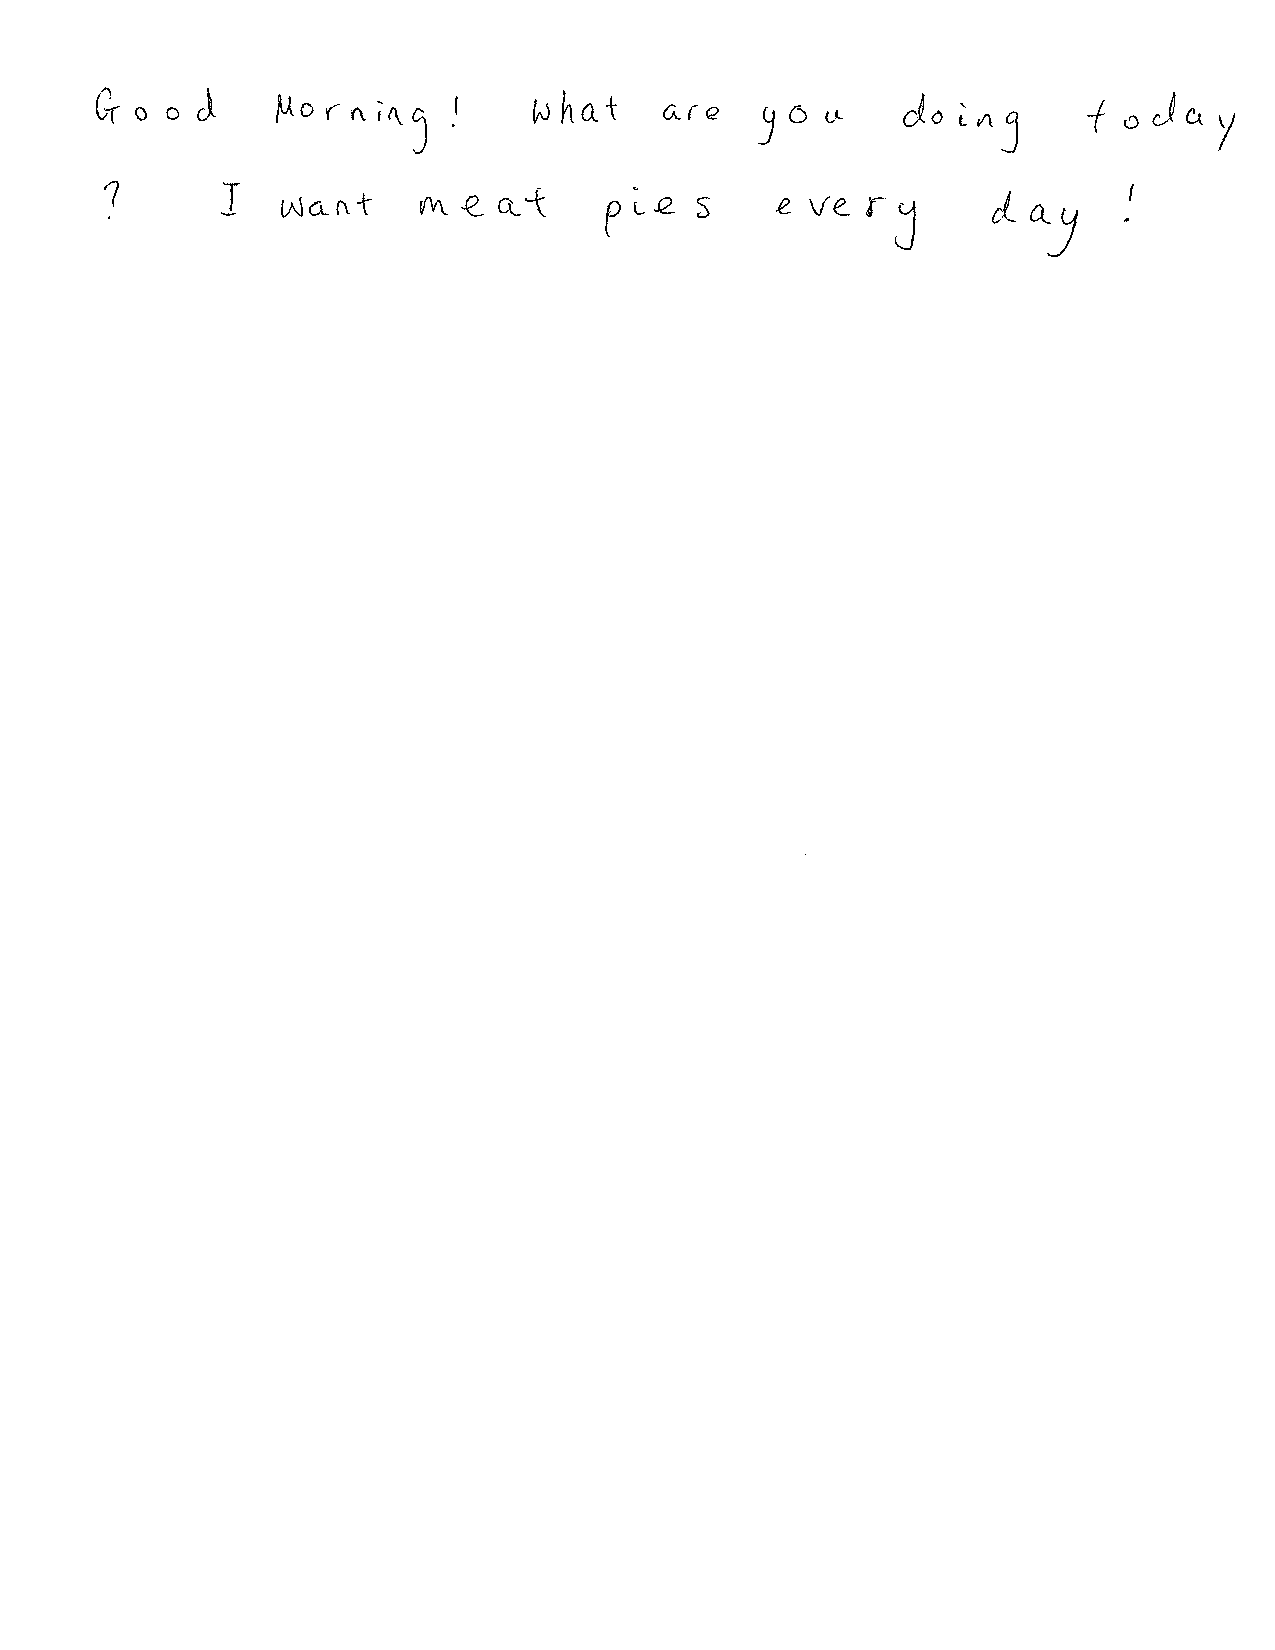 Good Morning! What are you doing today
? I want meat pies every day!